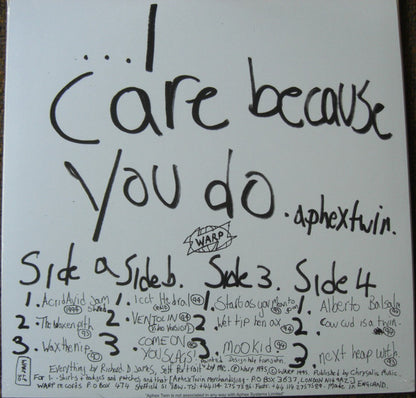 ...I
Care because
you do.
aphextwin.
WARP
Side a Side b. Side 3. Side 4
1. Acrid Avid Jam Shred 1. Icct Hedral 1. Start as you Mean to go 1. Alberto Balsalm
2. The Waxen pith 2. VENTOLIN 2. Wet tip hen ax 2. Cow cud is a twin.
3. Wax the Nip 3. COME ON YOU SLAGS! 3. Mookid 3. next heap with
Everything by Richard D James, Self Portrait by Me. WARP 1995. Published by Chrysalis Music.
For t-shirts & badges and patches and that [Aphex Twin Merchandising - PO BOX 3637, LONDON NW9
WARP records P O BOX 474 Sheffield MADE IN ENGLAND.
'Aphex Twin is not associated in any way with Aphex Systems Limited'